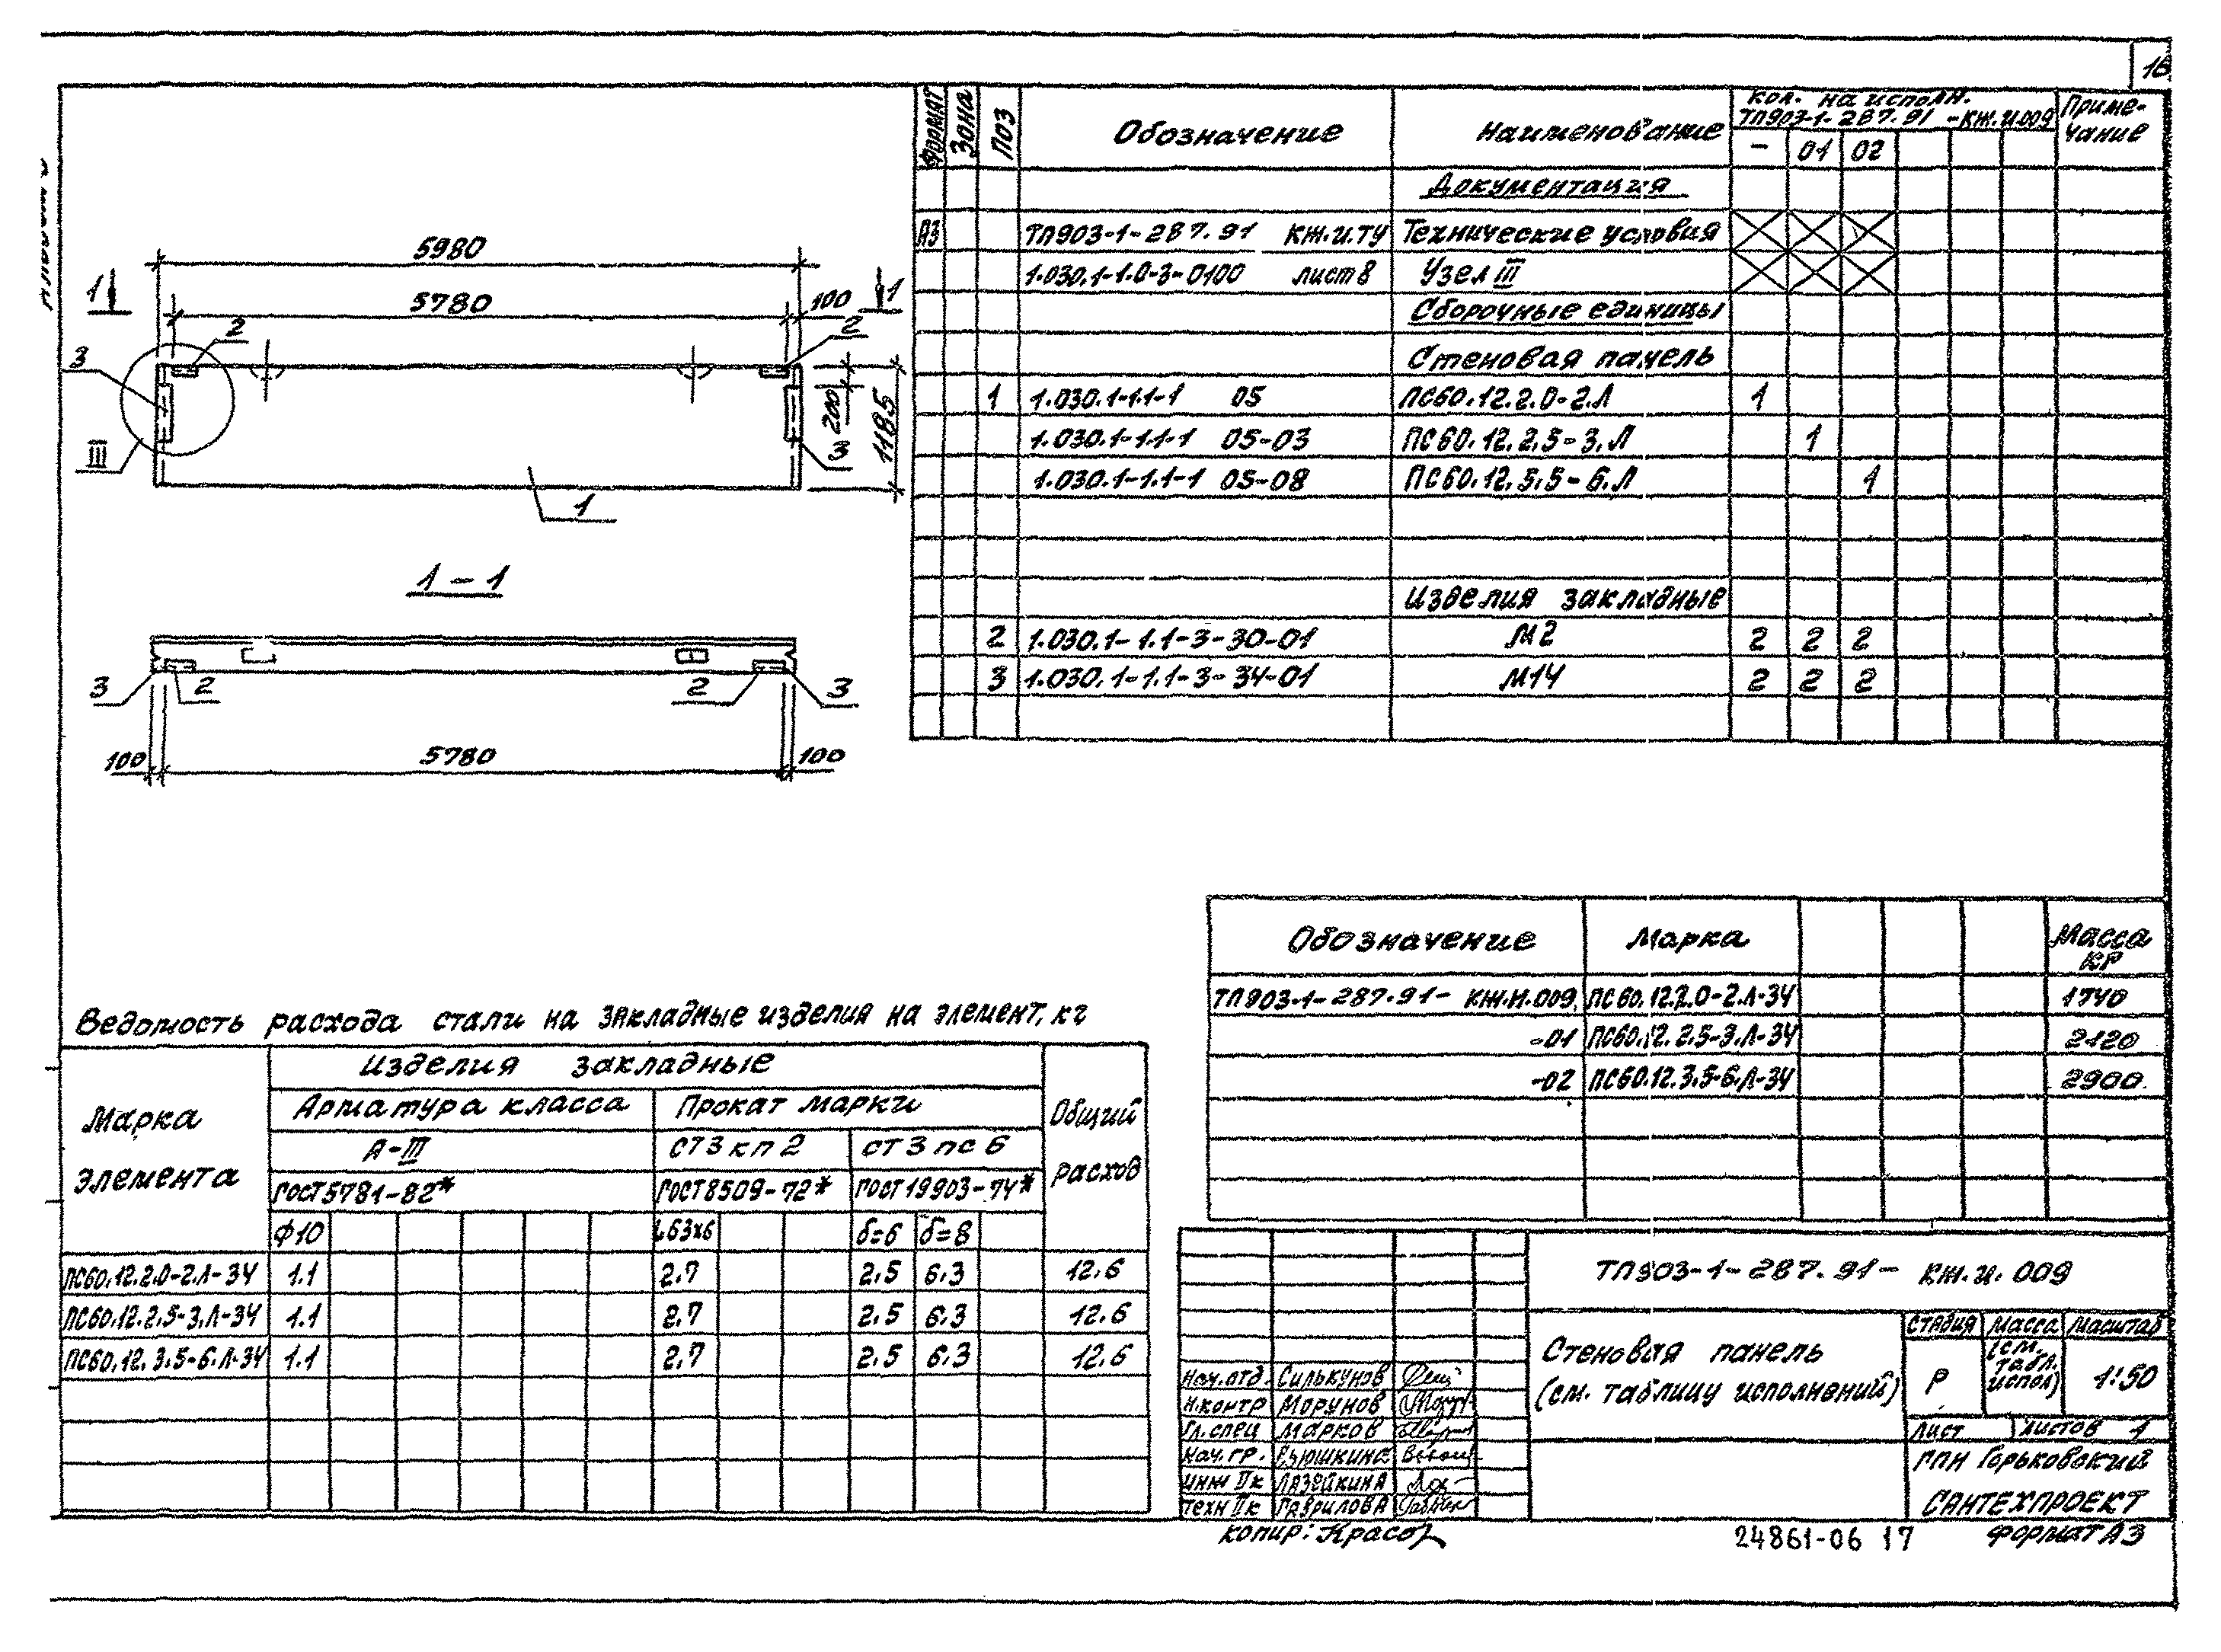 16
5980
5780
100
1 1
2 2
3
III
200
1185
3
1
1-1
3 2 2 3
100 5780 100
Формат Зона Поз Обозначение Наименование Кол. на исполн. ТП903-1-287.91-КЖ.И.009 Приме-чание
- 01 02
Документация
А3 ТП903-1-287.91 КЖ.И.ТУ Технические условия
1.030.1-1.0-3-0100 лист 8 Узел III
Сборочные единицы
Стеновая панель
1 1.030.1-1.1-1 05 ПС60.12.2.0-2.Л 1
1.030.1-1.1-1 05-03 ПС60.12.2,5-3.Л 1
1.030.1-1.1-1 05-08 ПС60.12.5,5-6.Л 1
Изделия закладные
2 1.030.1-1.1-3-30-01 М2 2 2 2
3 1.030.1-1.1-3-34-01 М14 2 2 2
Обозначение Марка Масса КГ
ТП903-1-287.91- КЖ.И.009 ПС60.12.2.0-2.Л-34 1740
-01 ПС60.12.2.5-3.Л-34 2120
-02 ПС60.12.3.5-6.Л-34 2900
Ведомость расхода стали на закладные изделия на элемент, кг
Марка элемента
Изделия закладные
Общий расход
Арматура класса Прокат марки
А-III СТ3кп2 СТ3пс6
ГОСТ5781-82* ГОСТ8509-72* ГОСТ19903-74*
Ф10 L63x6 δ=6 δ=8
ПС60.12.2.0-2.Л-34 1.1 2.7 2.5 6.3 12.6
ПС60.12.2.5-3.Л-34 1.1 2.7 2.5 6.3 12.6
ПС60.12.3.5-6.Л-34 1.1 2.7 2.5 6.3 12.6
ТП903-1-287.91- КЖ.И.009
Стеновая панель
(см. таблицу исполнений)
Стадия Масса Масштаб
Р (см. табл. испол) 1:50
Лист Листов 1
ГПИ Горьковский
САНТЕХПРОЕКТ
Нач.отд. Силькунов
Н.контр Морунов
Гл.спец Марков
Нач.гр. Вьюшкина
Инж IIк Лазейкина
Техн IIк Гаврилова
копир:
24861-06 17
Формат А3